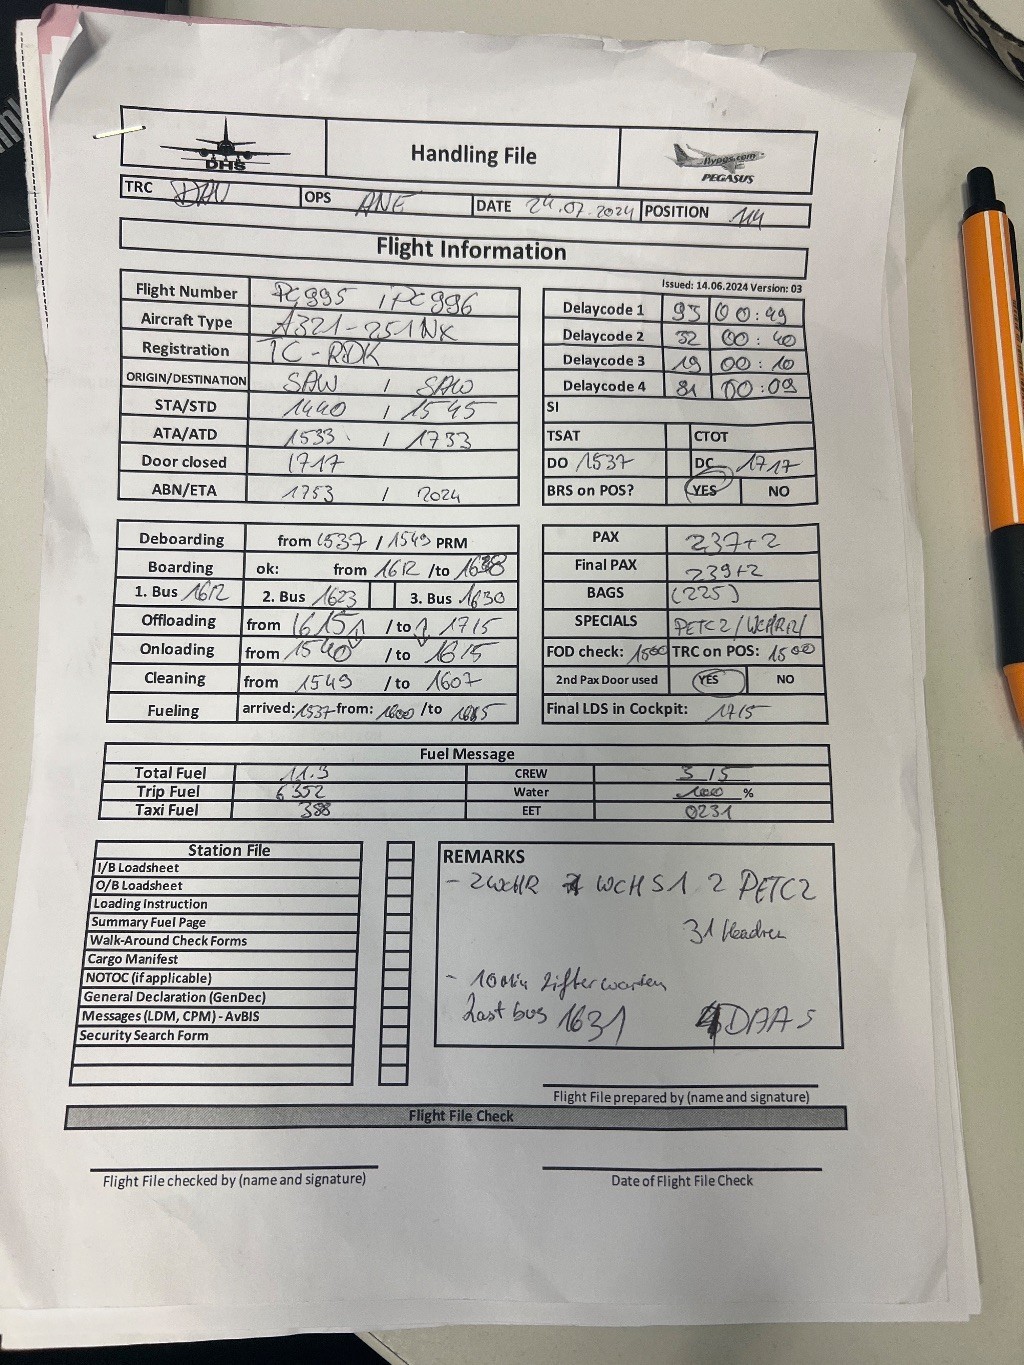 DHS
Handling File
flypgs.com
PEGASUS
TRC DAN OPS ANE DATE 24.07.2024 POSITION 114
Flight Information
Issued: 14.06.2024 Version: 03
Flight Number PC995 / PC996
Aircraft Type A321-251NX
Registration TC-RDK
ORIGIN/DESTINATION SAW / SAW
STA/STD 1440 / 1545
ATA/ATD 1533 / 1733
Door closed 1717
ABN/ETA 1753 / 2024
Delaycode 1 93 00:49
Delaycode 2 32 00:40
Delaycode 3 19 00:10
Delaycode 4 81 00:09
SI
TSAT CTOT
DO 1537 DC 1717
BRS on POS? YES NO
Deboarding from 1537 / 1549 PRM
Boarding ok: from 1612 /to 1638
1. Bus 1612 2. Bus 1623 3. Bus 1630
Offloading from 1615 /to 1715
Onloading from 1540 /to 1615
Cleaning from 1549 /to 1607
Fueling arrived: 1537 from: 1600 /to 1615
PAX 237+2
Final PAX 239+2
BAGS (225)
SPECIALS PETC2/WCHR2/
FOD check: 1500 TRC on POS: 1500
2nd Pax Door used YES NO
Final LDS in Cockpit: 1715
Fuel Message
Total Fuel 11.3 CREW 3/5
Trip Fuel 6352 Water 100 %
Taxi Fuel 388 EET 0231
Station File
I/B Loadsheet
O/B Loadsheet
Loading Instruction
Summary Fuel Page
Walk-Around Check Forms
Cargo Manifest
NOTOC (if applicable)
General Declaration (GenDec)
Messages (LDM, CPM) - AvBIS
Security Search Form
REMARKS
- 2WCHR WCHS1 2 PETC2
31
- 10 Min warten
Last bus 1631 4DAAS
Flight File prepared by (name and signature)
Flight File Check
Flight File checked by (name and signature)
Date of Flight File Check